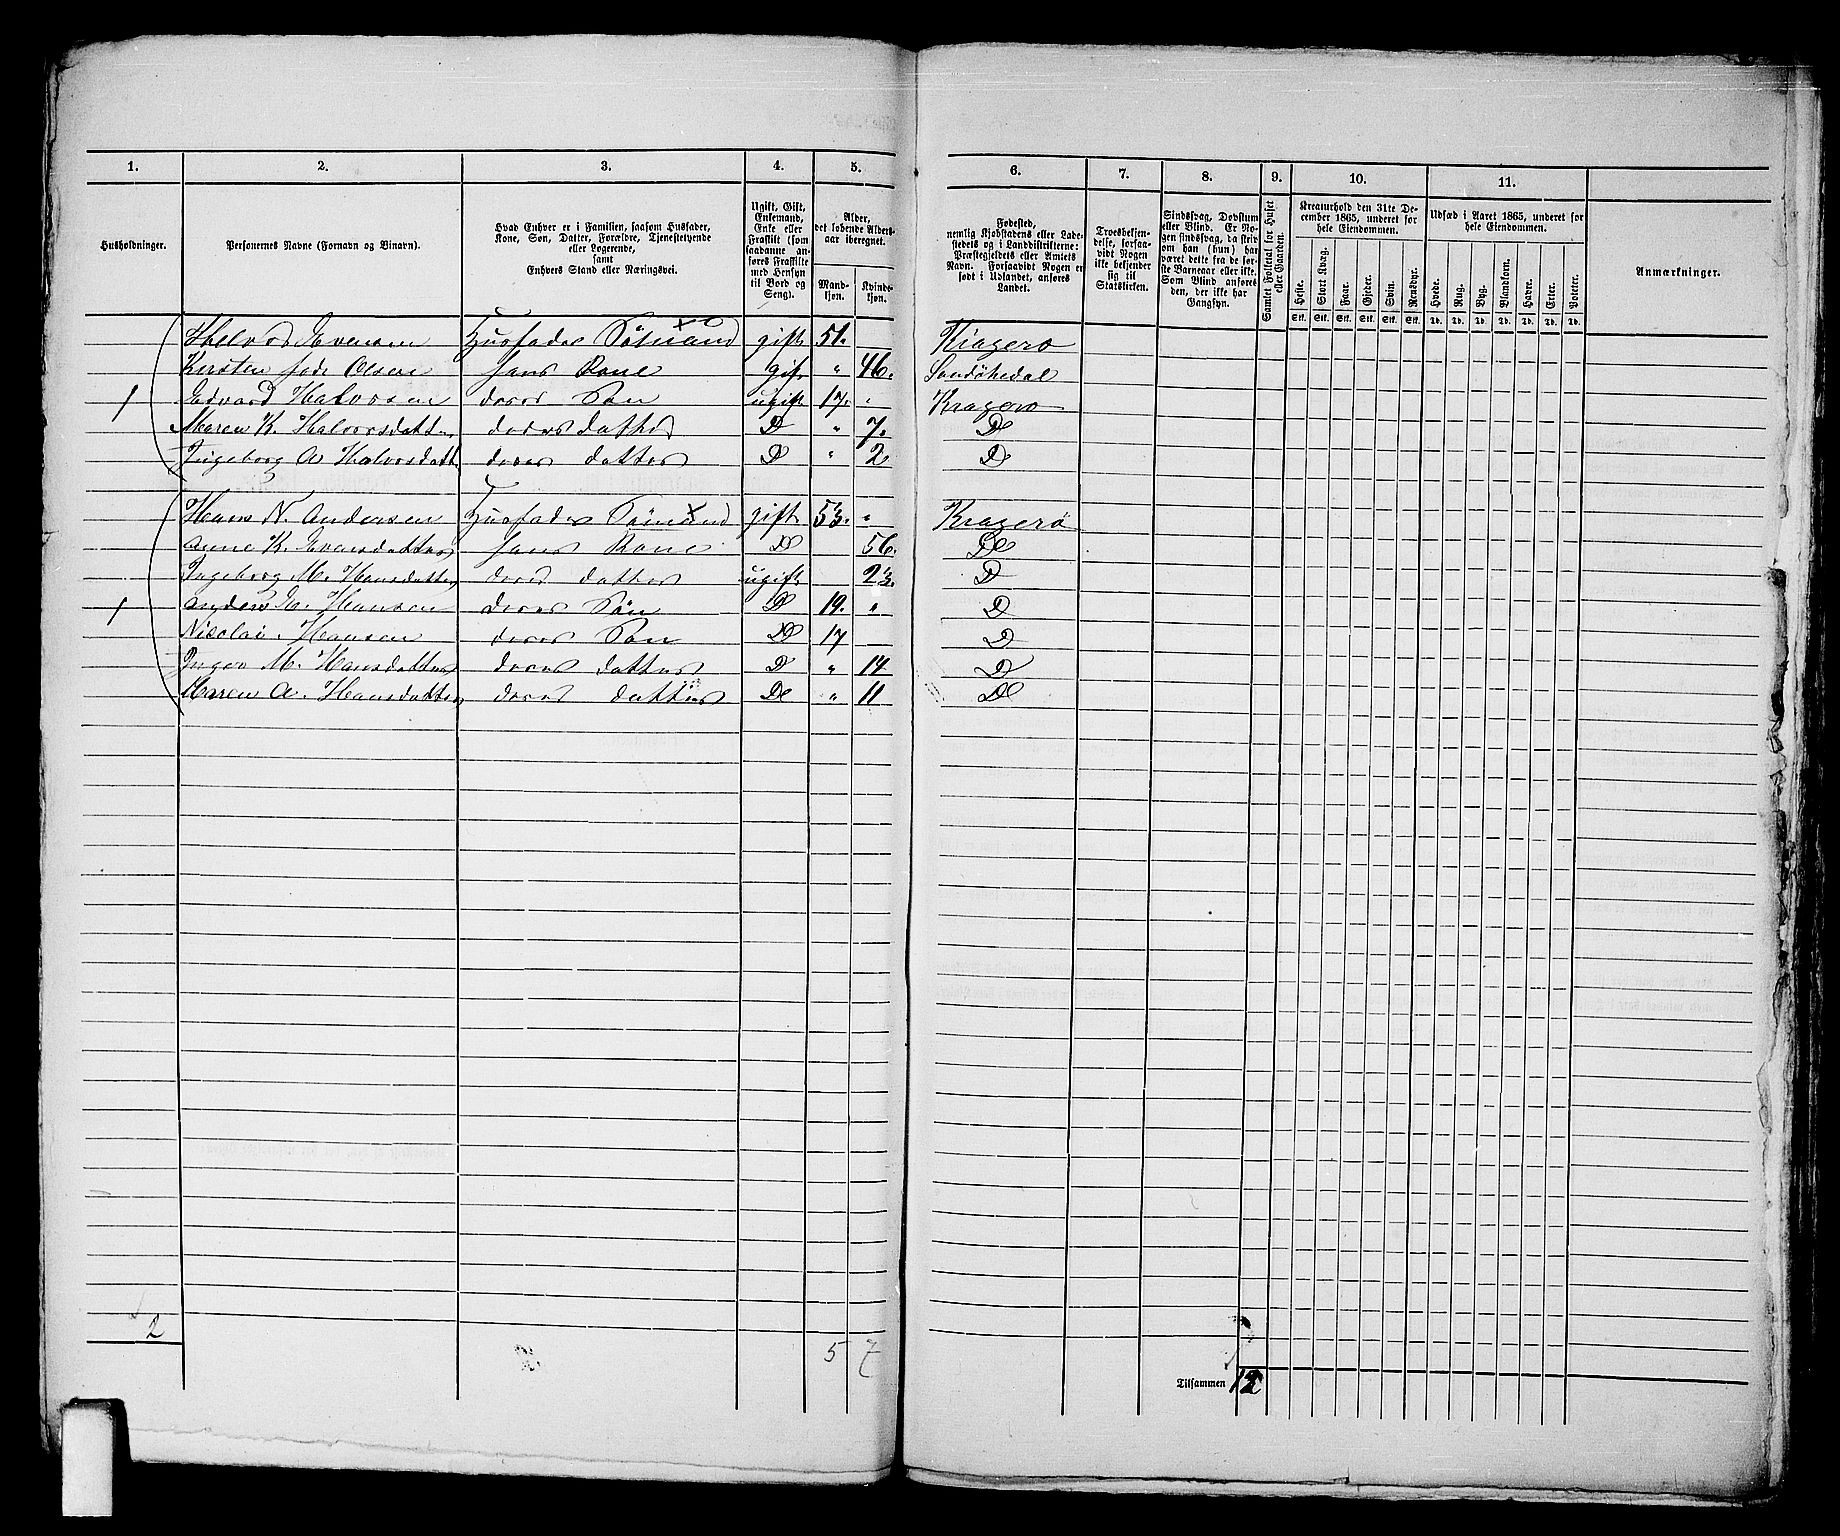 1. 2. 3. 4. 5. 6. 7. 8. 9. 10. 11.
Husholdninger.
Personernes Navne (Fornavn og Binavn).
Hvad Enhver er i Familien, saasom Husfader,
Kone, Søn, Datter, Forældre, Tjenestetyende
eller Logerende,
samt
Enhvers Stand eller Næringsvei.
Ugift, Gift,
Enkemand,
Enke eller
Fraskilt (som
saadanne an-
føres Fraskilte
med Hensyn
til Bord og
Seng).
Alder,
det løbende Alders-
aar iberegnet.
Mand-
kjøn.
Kvinde-
kjøn.
Fødested,
nemlig Kjøbstadens eller Lade-
stedets og i Landdistrikterne:
Præstegjeldets eller Amtets
Navn. Forsaavidt Nogen er
født i Udlandet, anføres
Landet.
Troesbekjen-
delse, forsaa-
vidt Nogen
ikke bekjender
sig til
Statskirken.
Sindssvag, Døvstum
eller Blind. Er No-
gen sindssvag, da skriv
om han (hun) har
været dette fra de før-
ste Barneaar eller ikke.
Som Blind anføres
den, der ikke har
Gangsyn.
Samlet Folketal for Huset
eller Gaarden.
Kreaturhold den 31te De-
cember 1865, underet for
hele Eiendommen.
Heste. Stort Kvæg. Faar. Gjeder. Svin. Rensdyr.
Stk. Stk. Stk. Stk. Stk. Stk.
Udsæd i Aaret 1865, underet for
hele Eiendommen.
Hvede. Rug. Byg. Blandkorn. Havre. Erter. Poteter.
Td. Td. Td. Td. Td. Td. Td.
Anmærkninger.
Halvor Evensen Husfader Sømand gift 51. Kragerø
Kirsten født Olsen hans Kone gift " 46. Sandøkedal
1 Edvard Halvorsen deres Søn ugift 17. " Kragerø
Maren K. Halvorsdatter deres datter D " 7. D
Ingeborg A Halvorsdatt deres datter D " 2 D
Hans N. Andersen Husfader Sømand gift 53. " Kragerø
Anne K. Evensdatter hans Kone D 56. D
Ingeborg M. Hansdatter deres datter ugift 23. D
1 Anders Hansen deres Søn D 19. " D
Nicolai Hansen deres Søn D 17 D
Inger M. Hansdatter deres datter D " 14 D
Maren A. Hansdatter deres datter D " 11 D
2 5 7
Tilsammen 12